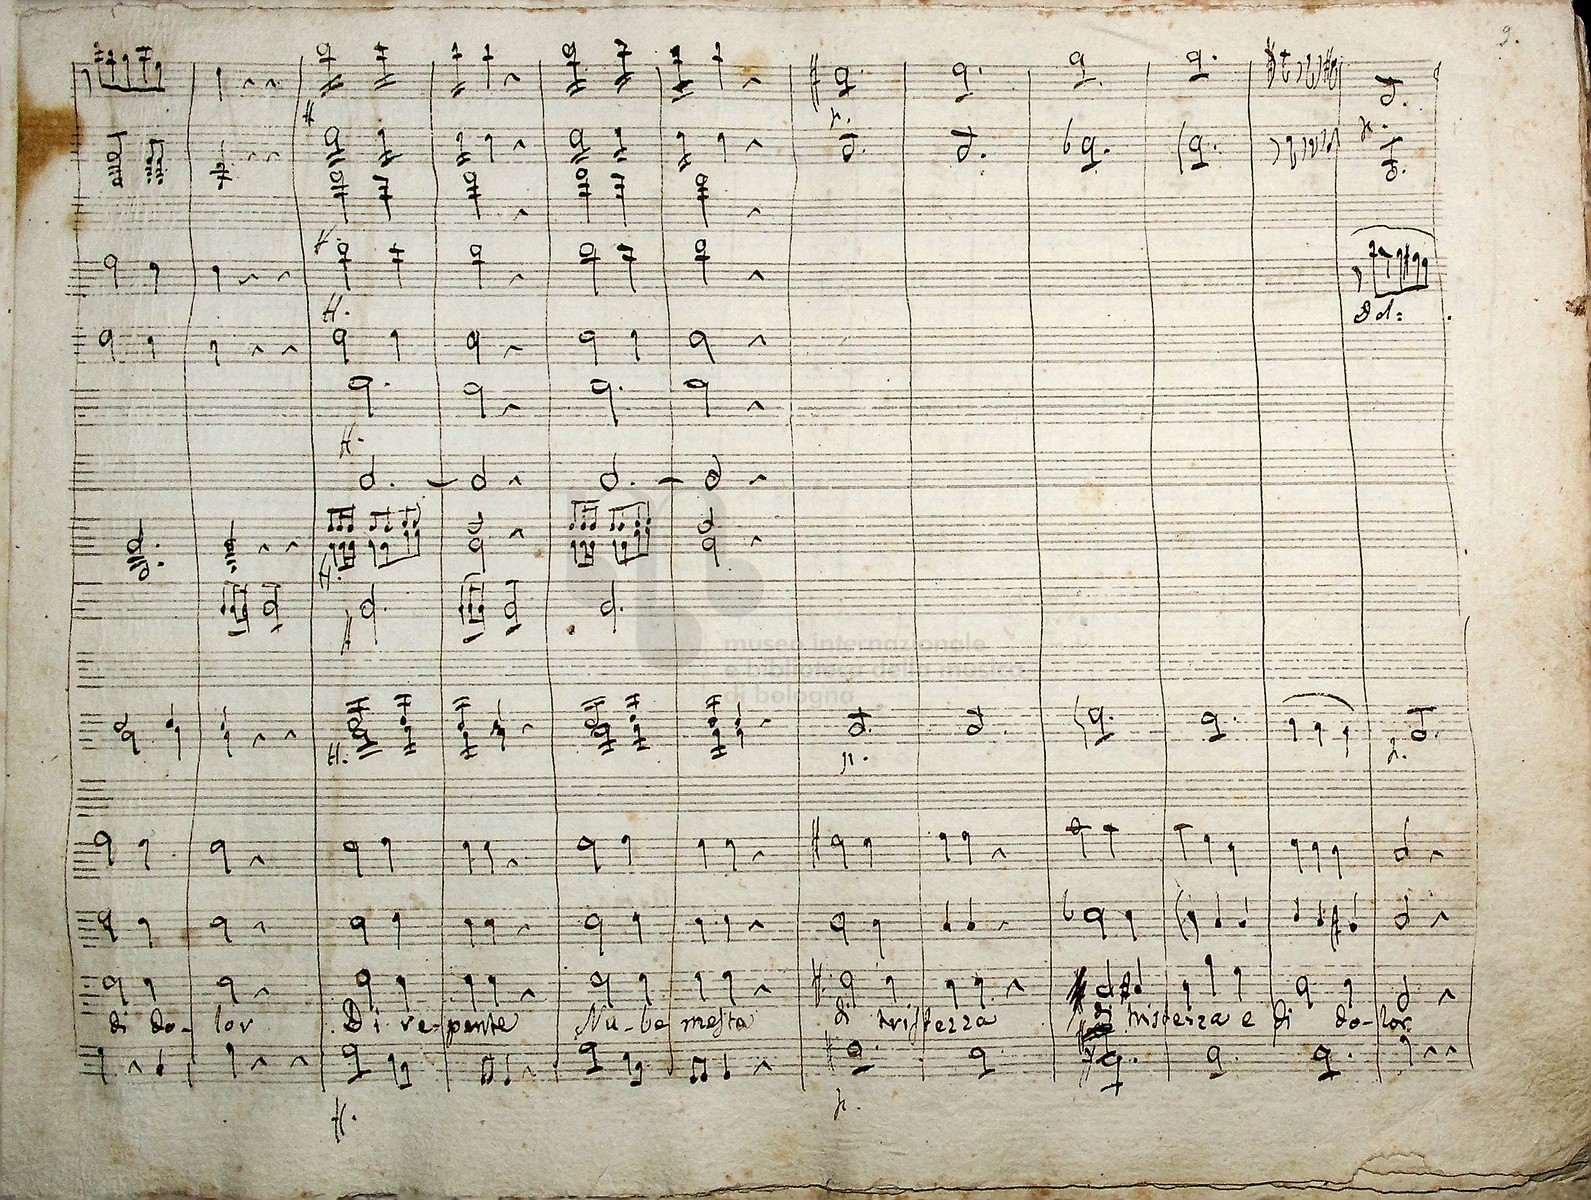 9.
museo internazionale
e biblioteca della musica
di bologna
di do- lor Di re-pente Nu-be mesta di tristezza mistezza e di do-lor